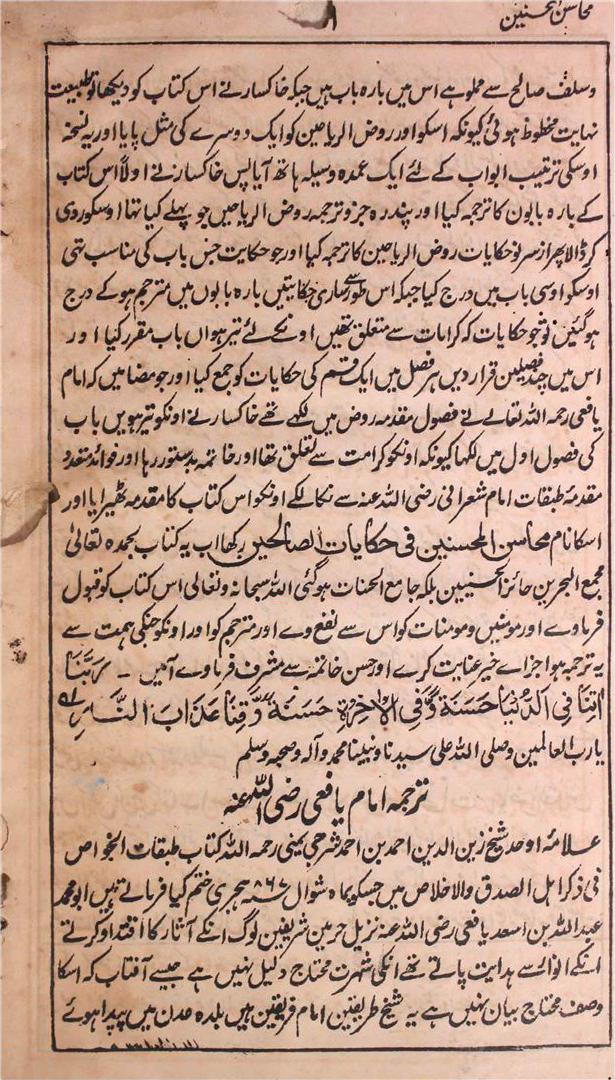 محاسن المحسنین
وسلف صالح سے مملو ہے اس میں بارہ باب ہیں جبکہ خاکسار نے اس کتاب کو دیکھا تو طبیعت
نہایت محظوظ ہوئی کیونکہ اسکو اور روض الریاحین کو ایک دوسرے کی مثل پایا اور یہ نسخہ
اوسکی ترتیب ابواب کے لئے ایک عمدہ وسیلہ ہاتھ آیا پس خاکسار نے اولاً اس کتاب
کے بارہ بابون کا ترجمہ کیا اور پندرہ جزو ترجمہ روض الریاحین جو پہلے کیا تہا اوسکو ردی
کر ڈالا پھر از سر نو حکایات روض الریاحین کا ترجمہ کیا اور جو حکایت جس باب کی مناسب تہی
اوسکو اوسی باب میں درج کیا جبکہ اس طور سے ساری حکایتیں بارہ بابوں میں مترجم ہو کے درج
ہو گئیں تو جو حکایات کہ کرامات سے متعلق تھیں اونکے لئے تیرہواں باب مقرر کیا اور
اس میں چند فصلین قرار دیں ہر فصل میں ایک قسم کی حکایات کو جمع کیا اور جو مضامین کہ امام
یافعی رحمہ اللہ تعالے نے فصول مقدمہ روض میں لکھے تھے خاکسار نے اونکو تیرہویں باب
کی فصول اول میں لکھا کیونکہ اونکو کرامت سے تعلق تھا اور خاتمہ بدستور رہا اور فوائد متعدد
مقدمۂ طبقات امام شعرانی رضی اللہ عنہ سے نکالکے اونکو اس کتاب کا مقدمہ ٹھیرایا اور
اسکا نام محاسن المحسنین فی حکایات الصالحین رکھا اب یہ کتاب بحمدہ تعالیٰ
مجمع البحرین حائز الحسنیین بلکہ جامع الحسنات ہو گئی اللہ سبحانہ وتعالی اس کتاب کو قبول
فرماوے اور مومنین ومومنات کو اس سے نفع دے اور مترجم کو اور اونکو جنکی ہمت سے
یہ ترجمہ ہوا جزاے خیر عنایت کرے اور حسن خاتمہ سے مشرف فرماوے آمین - رَبَّنَا
اٰتِنَا فِي الدُّنْيَا حَسَنَةً وَّفِي الْاٰخِرَةِ حَسَنَةً وَّقِنَا عَذَابَ النَّارِ
یا رب العالمین وصلی اللہ علی سیدنا ونبینا محمد وآلہ وصحبہ وسلم
ترجمہ امام یافعی رضی اللہ عنہ
علامۂ اوحد شیخ زین الدین احمد بن احمد شرجی یمنی رحمہ اللہ کتاب طبقات الخواص
فی ذکر اہل الصدق والاخلاص میں جسکو بماہ شوال ۸۶۷ ہجری ختم کیا فرماتے ہیں ابو محمد
عبد اللہ بن اسعد یافعی رضی اللہ عنہ نزیل حرمین شریفین لوگ انکے آثار کا اقتدا کرتے
انکے انوار سے ہدایت پاتے تھے انکی شہرت محتاج دلیل نہیں ہے جیسے آفتاب کہ اسکا
وصف محتاج بیان نہیں ہے یہ شیخ طریقین امام فریقین ہیں بلدہ عدن میں پیدا ہوئے